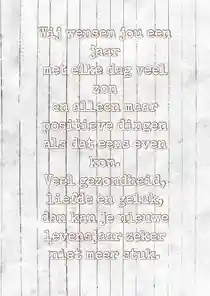 Wij wensen jou een
jaar
met elke dag veel
zon
en alleen maar
positieve dingen
als dat eens even
kon.
Veel gezondheid,
liefde en geluk,
dan kan je nieuwe
levensjaar zeker
niet meer stuk.